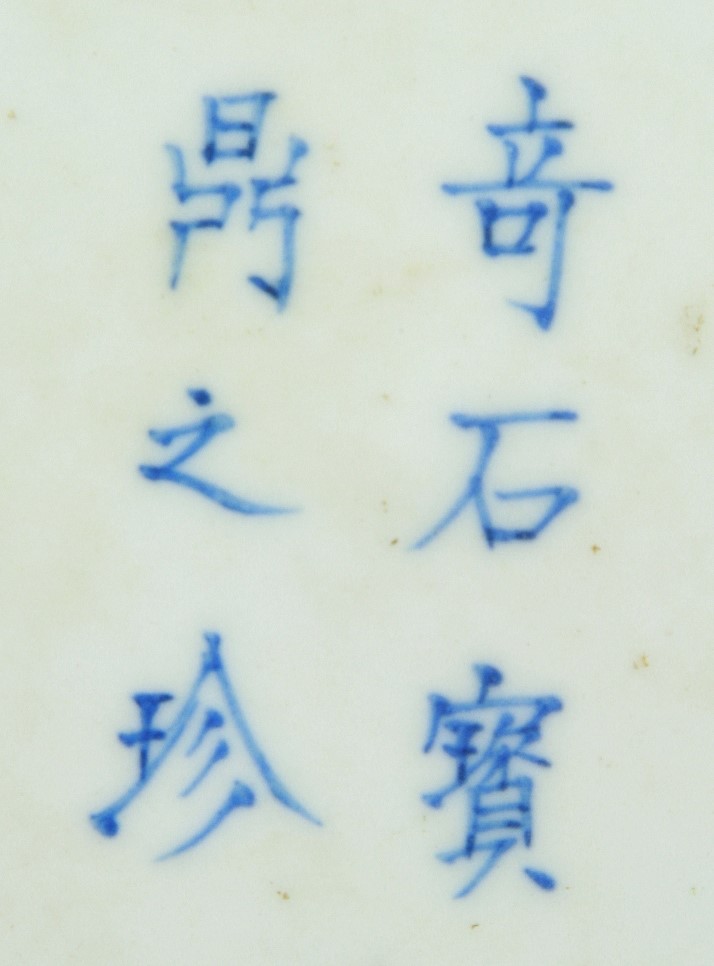 竒石寶
鼎之珍